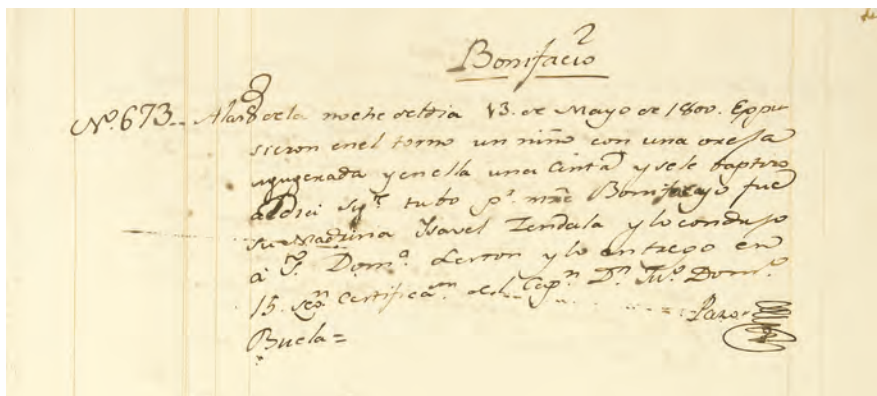 Bonifacio
Nº. 673.. Alas 8 de la noche del dia 13. de Mayo de 1800. Expu
sieron en el torno un niño con una oreja
agugerada y en ella una Cinta y se le baptizo
al dia sig.te tubo p.r nre Bonifacio fue
su Madrina Ysavel Zendala y lo condujo
á S. Dom.º Lerron y lo entrego en
15. seg.n Certificac.on del Cap.n D.n Ju.º Dom.º
Buela= Pazo